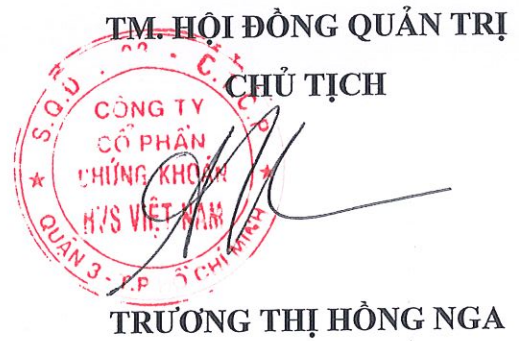 TM. HỘI ĐỒNG QUẢN TRỊ
CHỦ TỊCH
CÔNG TY
CỔ PHẦN
CHỨNG KHOÁN
VIỆT NAM
QUẬN 3 - T.P HỒ CHÍ MINH
TRƯƠNG THỊ HỒNG NGA